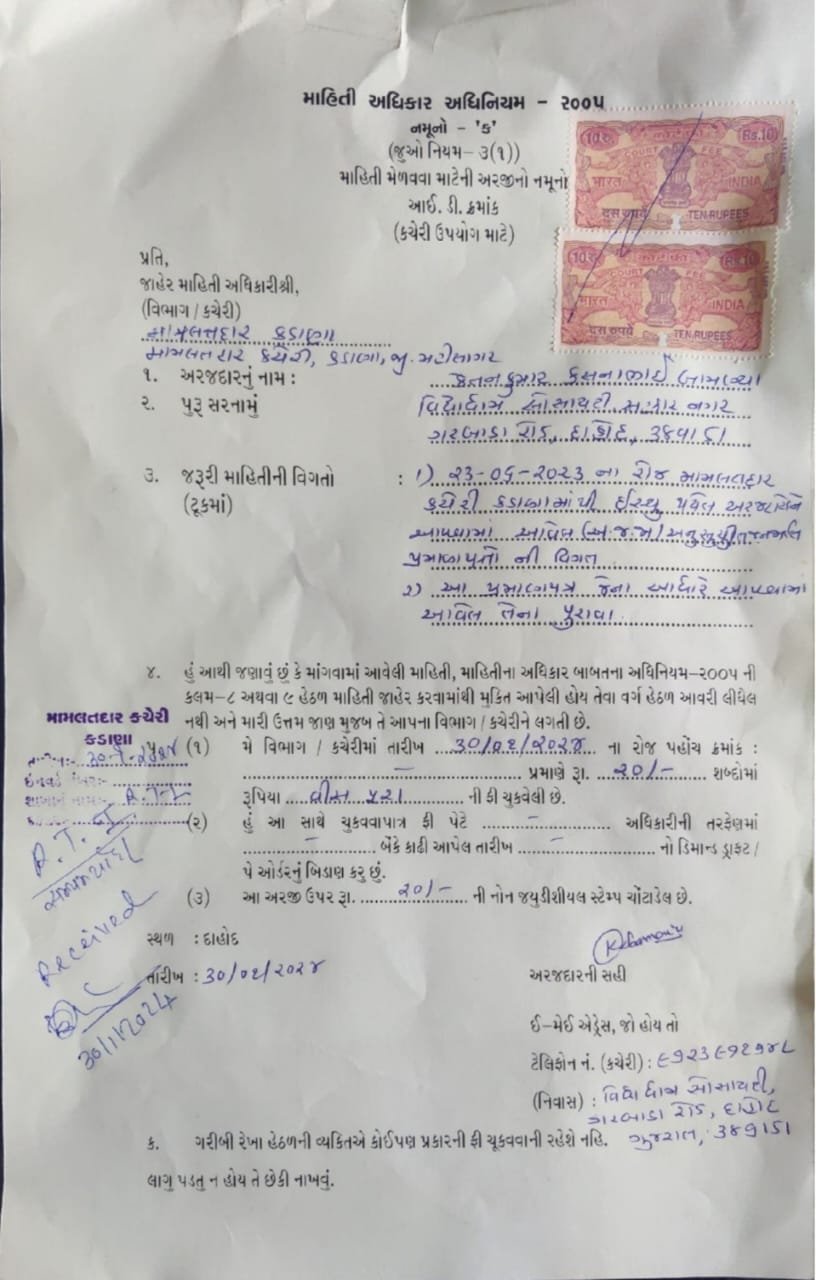 માહિતી અધિકાર અધિનિયમ - ૨૦૦૫
નમૂનો - 'ક'
(જુઓ નિયમ- ૩(૧))
માહિતી મેળવવા માટેની અરજીનો નમૂનો
આઈ. ડી. ક્રમાંક
(કચેરી ઉપયોગ માટે)
10रु. कोर्ट फी Rs.10
COURT FEE
भारत INDIA
दस रुपये TEN RUPEES
10रु. कोर्ट फी Rs.10
COURT FEE
भारत INDIA
दस रुपये TEN RUPEES
પ્રતિ,
જાહેર માહિતી અધિકારીશ્રી,
(વિભાગ / કચેરી)
મામલતદાર કડાણા
મામલતદાર કચેરી, કડાણા, જી. મહીસાગર
૧. અરજદારનું નામ :
૨. પુરૂ સરનામું વિદ્યાધામ સોસાયટી, સહકાર નગર
ગરબાડા રોડ, દાહોદ,
૩. જરૂરી માહિતીની વિગતો : ૧) ૨૩-૦૬-૨૦૨૩ ના રોજ મામલતદાર
(ટૂકમાં) કચેરી કડાણામાંથી ઈસ્યુ
આપવામાં આવેલ (અ.જ.જા) અનુસુચીત જનજાતિ
પ્રમાણપત્રો ની વિગત
૨) આ પ્રમાણપત્ર જેના આધારે આપવામાં
આવેલ તેના પુરાવા
૪. હું આથી જણાવું છું કે માંગવામાં આવેલી માહિતી, માહિતીના અધિકાર બાબતના અધિનિયમ-૨૦૦૫ ની
કલમ-૮ અથવા ૯ હેઠળ માહિતી જાહેર કરવામાંથી મુકિત આપેલી હોય તેવા વર્ગ હેઠળ આવરી લીધેલ
નથી અને મારી ઉત્તમ જાણ મુજબ તે આપના વિભાગ / કચેરીને લગતી છે.
મામલતદાર કચેરી
કડાણા
(૧) મે વિભાગ / કચેરીમાં તારીખ ૩૦/૦૧/૨૦૨૪ ના રોજ પહોંચ ક્રમાંક :
- પ્રમાણે રૂા. ૨૦/- શબ્દોમાં
રૂપિયા વીસ પુરા ની ફી ચુકવેલી છે.
R.T.I
(૨) હું આ સાથે ચુકવવાપાત્ર ફી પેટે - અધિકારીની તરફેણમાં
- બેંકે કાઢી આપેલ તારીખ - નો ડિમાન્ડ ડ્રાફ્ટ /
પે ઓર્ડરનું બિડાણ કરુ છું.
(૩) આ અરજી ઉપર રૂા. ૨૦/- ની નોન જયુડીશીયલ સ્ટેમ્પ ચોંટાડેલ છે.
R.T.I
Received
30/1/2024
સ્થળ : દાહોદ
તારીખ : ૩૦/૦૧/૨૦૨૪
અરજદારની સહી
ઈ-મેઈ એડ્રેસ, જો હોય તો
ટેલિફોન નં. (કચેરી) :
(નિવાસ) : વિદ્યાધામ સોસાયટી,
ગરબાડા રોડ, દાહોદ
ગુજરાત, ૩૮૯૧૫૧
ક. ગરીબી રેખા હેઠળની વ્યકિતએ કોઈપણ પ્રકારની ફી ચૂકવવાની રહેશે નહિ.
લાગુ પડતુ ન હોય તે છેકી નાખવું.